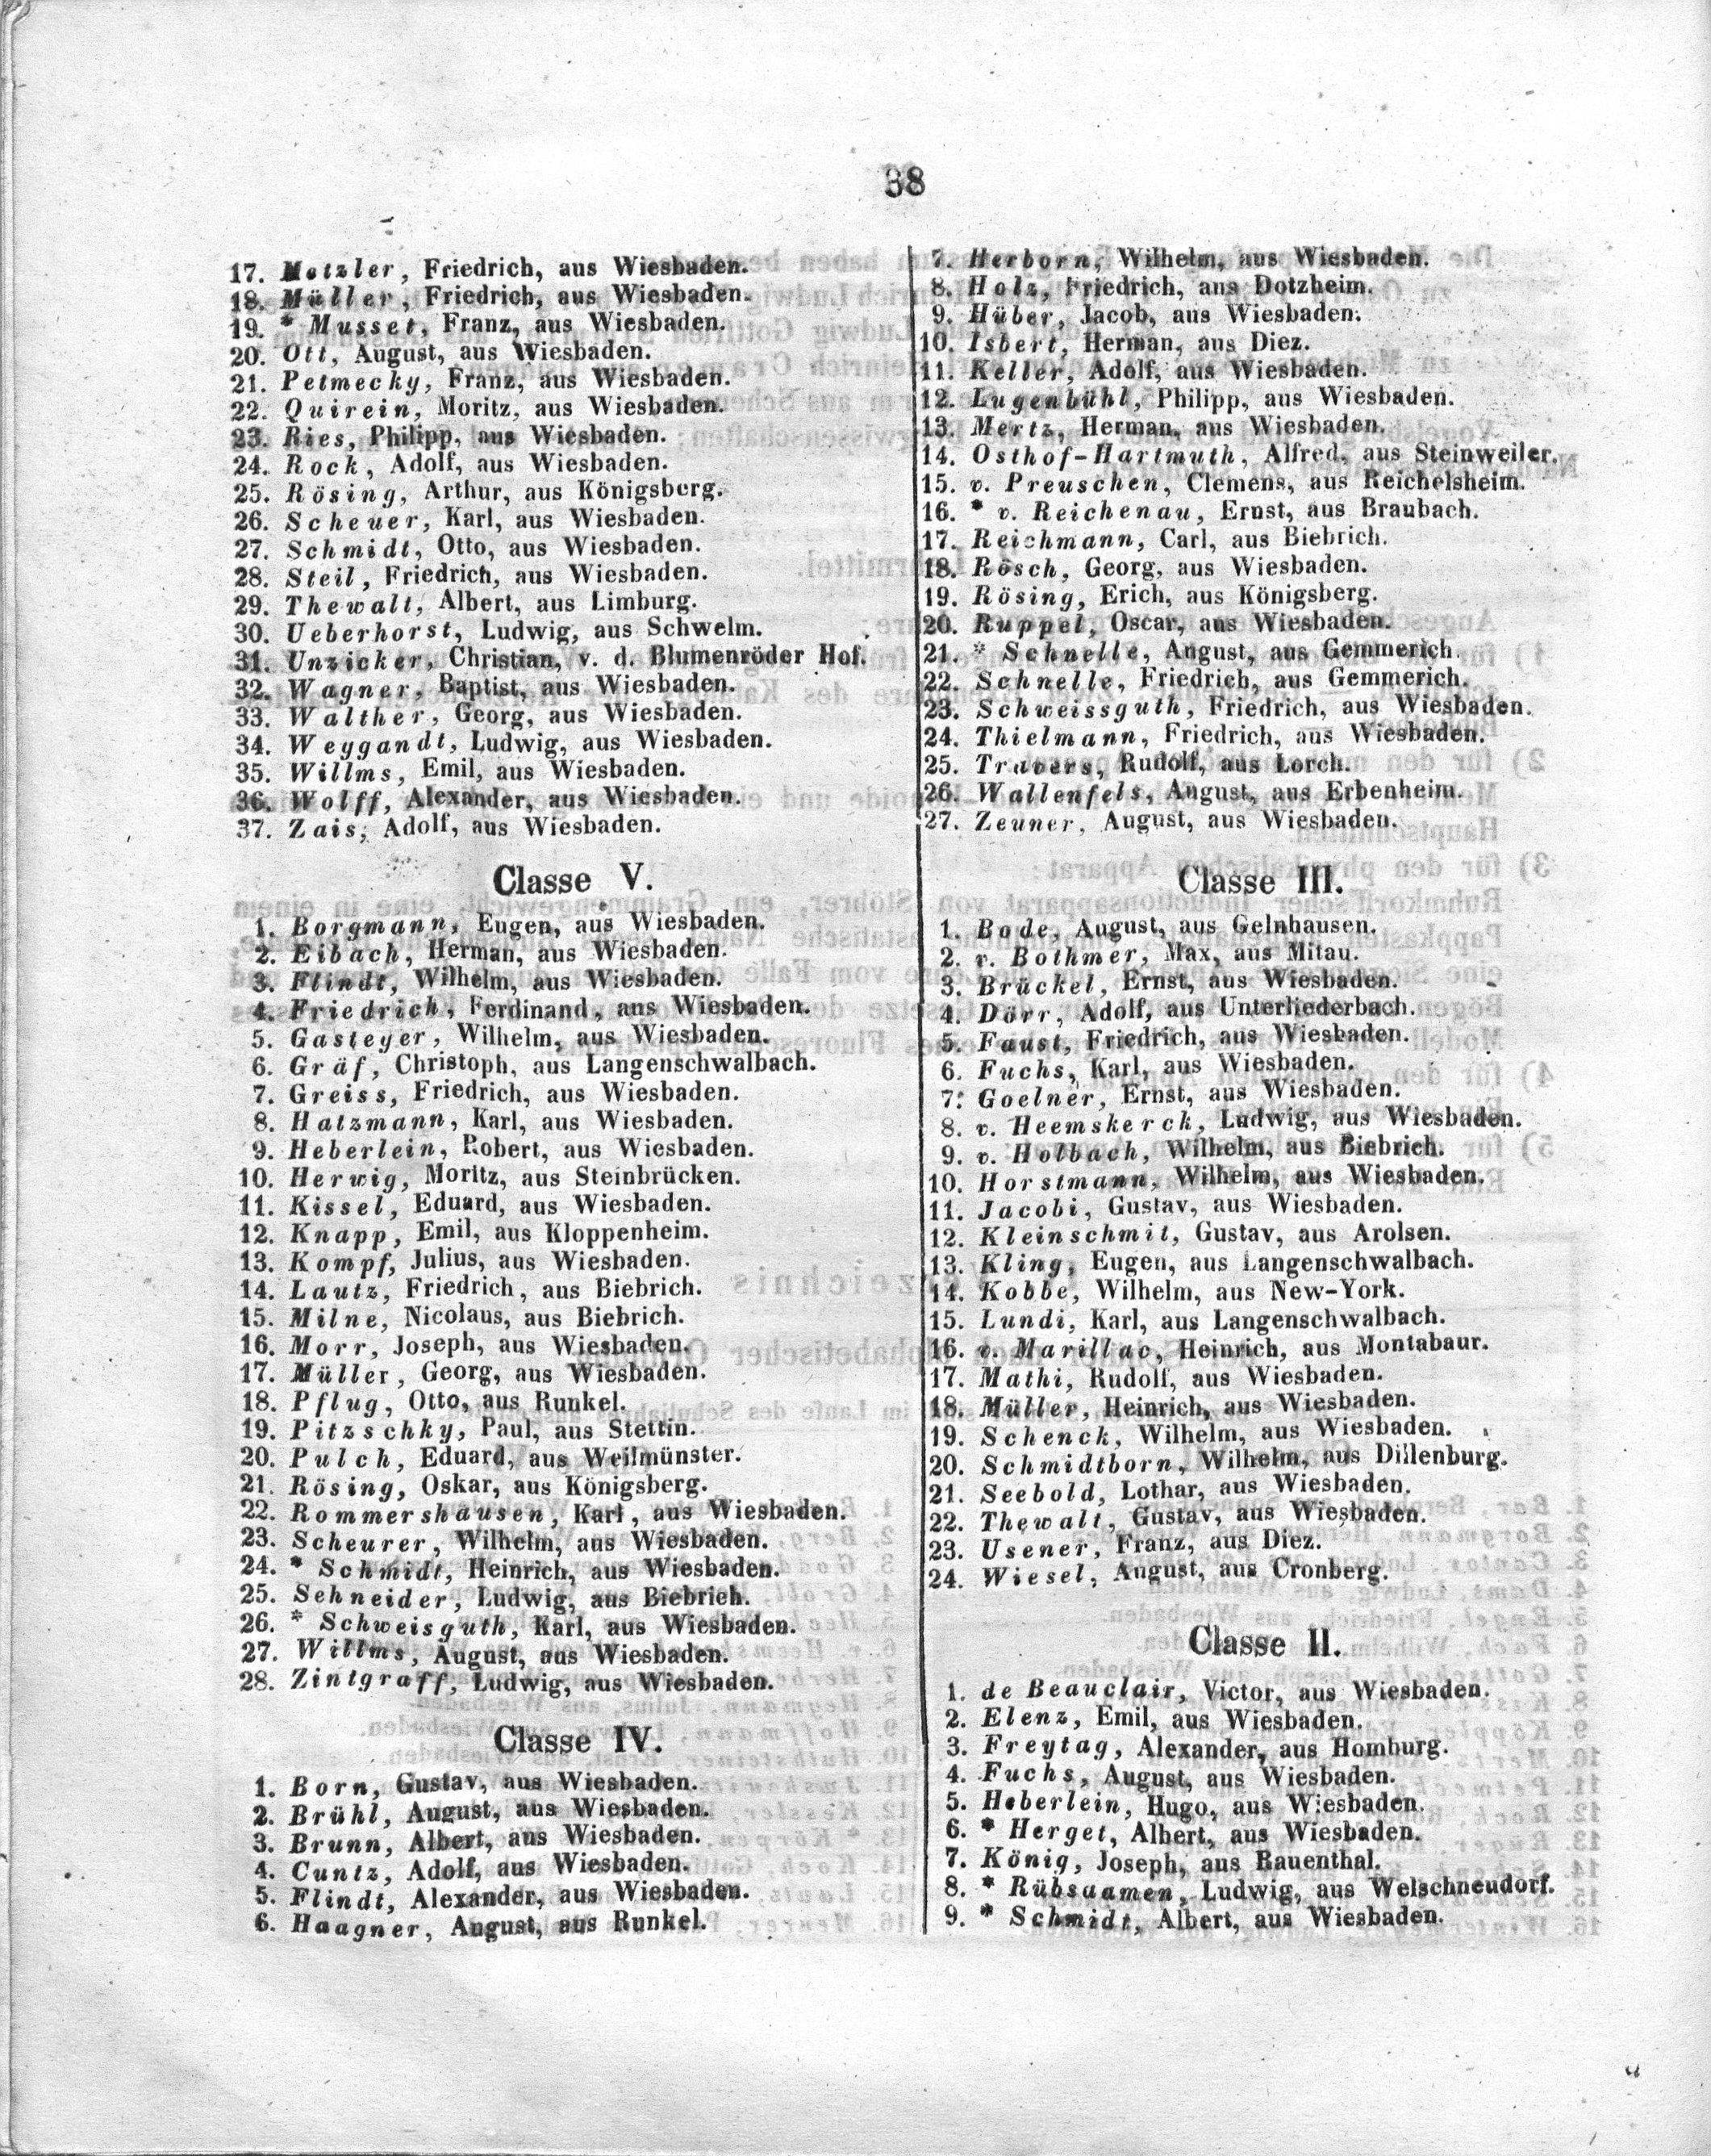 38
17. Metzler, Friedrich, aus Wiesbaden.
18. Müller, Friedrich, aus Wiesbaden.
19. * Musset, Franz, aus Wiesbaden.
20. Ott, August, aus Wiesbaden.
21. Petmecky, Franz, aus Wiesbaden.
22. Quirein, Moritz, aus Wiesbaden.
23. Ries, Philipp, aus Wiesbaden.
24. Rock, Adolf, aus Wiesbaden.
25. Rösing, Arthur, aus Königsberg.
26. Scheuer, Karl, aus Wiesbaden.
27. Schmidt, Otto, aus Wiesbaden.
28. Steil, Friedrich, aus Wiesbaden.
29. Thewalt, Albert, aus Limburg.
30. Ueberhorst, Ludwig, aus Schwelm.
31. Unzicker, Christian, v. d. Blumenröder Hof.
32. Wagner, Baptist, aus Wiesbaden.
33. Walther, Georg, aus Wiesbaden.
34. Weygandt, Ludwig, aus Wiesbaden.
35. Willms, Emil, aus Wiesbaden.
36. Wolff, Alexander, aus Wiesbaden.
37. Zais, Adolf, aus Wiesbaden.
Classe V.
1. Borgmann, Eugen, aus Wiesbaden.
2. Eibach, Herman, aus Wiesbaden.
3. Flindt, Wilhelm, aus Wiesbaden.
4. Friedrich, Ferdinand, aus Wiesbaden.
5. Gasteyer, Wilhelm, aus Wiesbaden.
6. Gräf, Christoph, aus Langenschwalbach.
7. Greiss, Friedrich, aus Wiesbaden.
8. Hatzmann, Karl, aus Wiesbaden.
9. Heberlein, Robert, aus Wiesbaden.
10. Herwig, Moritz, aus Steinbrücken.
11. Kissel, Eduard, aus Wiesbaden.
12. Knapp, Emil, aus Kloppenheim.
13. Kompf, Julius, aus Wiesbaden.
14. Lautz, Friedrich, aus Biebrich.
15. Milne, Nicolaus, aus Biebrich.
16. Morr, Joseph, aus Wiesbaden.
17. Müller, Georg, aus Wiesbaden.
18. Pflug, Otto, aus Runkel.
19. Pitzschky, Paul, aus Stettin.
20. Pulch, Eduard, aus Weilmünster.
21. Rösing, Oskar, aus Königsberg.
22. Rommershausen, Karl, aus Wiesbaden.
23. Scheurer, Wilhelm, aus Wiesbaden.
24. * Schmidt, Heinrich, aus Wiesbaden.
25. Sehneider, Ludwig, aus Biebrich.
26. * Schweisguth, Karl, aus Wiesbaden.
27. Willms, August, aus Wiesbaden.
28. Zintgraff, Ludwig, aus Wiesbaden.
Classe IV.
1. Born, Gustav, aus Wiesbaden.
2. Brühl, August, aus Wiesbaden.
3. Brunn, Albert, aus Wiesbaden.
4. Cuntz, Adolf, aus Wiesbaden.
5. Flindt, Alexander, aus Wiesbaden.
6. Haagner, August, aus Runkel.
7. Herborn, Wilhelm, aus Wiesbaden.
8. Holz, Friedrich, aus Dotzheim.
9. Hüber, Jacob, aus Wiesbaden.
10. Isbert, Herman, aus Diez.
11. Keller, Adolf, aus Wiesbaden.
12. Lugenbühl, Philipp, aus Wiesbaden.
13. Mertz, Herman, aus Wiesbaden.
14. Osthof-Hartmuth, Alfred, aus Steinweiler.
15. v. Preuschen, Clemens, aus Reichelsheim.
16. * v. Reichenau, Ernst, aus Braubach.
17. Reichmann, Carl, aus Biebrich.
18. Rösch, Georg, aus Wiesbaden.
19. Rösing, Erich, aus Königsberg.
20. Ruppel, Oscar, aus Wiesbaden.
21. * Schnelle, August, aus Gemmerich.
22. Schnelle, Friedrich, aus Gemmerich.
23. Schweissguth, Friedrich, aus Wiesbaden.
24. Thielmann, Friedrich, aus Wiesbaden.
25. Travers, Rudolf, aus Lorch.
26. Wallenfels, August, aus Erbenheim.
27. Zeuner, August, aus Wiesbaden.
Classe III.
1. Bode, August, aus Gelnhausen.
2. v. Bothmer, Max, aus Mitau.
3. Brückel, Ernst, aus Wiesbaden.
4. Dörr, Adolf, aus Unterliederbach.
5. Faust, Friedrich, aus Wiesbaden.
6. Fuchs, Karl, aus Wiesbaden.
7. Goelner, Ernst, aus Wiesbaden.
8. v. Heemskerck, Ludwig, aus Wiesbaden.
9. v. Holbach, Wilhelm, aus Biebrich.
10. Horstmann, Wilhelm, aus Wiesbaden.
11. Jacobi, Gustav, aus Wiesbaden.
12. Kleinschmit, Gustav, aus Arolsen.
13. Kling, Eugen, aus Langenschwalbach.
14. Kobbe, Wilhelm, aus New-York.
15. Lundi, Karl, aus Langenschwalbach.
16. v. Marillac, Heinrich, aus Montabaur.
17. Mathi, Rudolf, aus Wiesbaden.
18. Müller, Heinrich, aus Wiesbaden.
19. Schenck, Wilhelm, aus Wiesbaden.
20. Schmidtborn, Wilhelm, aus Dillenburg.
21. Seebold, Lothar, aus Wiesbaden.
22. Thewalt, Gustav, aus Wiesbaden.
23. Usener, Franz, aus Diez.
24. Wiesel, August, aus Cronberg.
Classe II.
1. de Beauclair, Victor, aus Wiesbaden.
2. Elenz, Emil, aus Wiesbaden.
3. Freytag, Alexander, aus Homburg.
4. Fuchs, August, aus Wiesbaden.
5. Heberlein, Hugo, aus Wiesbaden.
6. * Herget, Albert, aus Wiesbaden.
7. König, Joseph, aus Rauenthal.
8. * Rübsaamen, Ludwig, aus Welschneudorf.
9. * Schmidt, Albert, aus Wiesbaden.